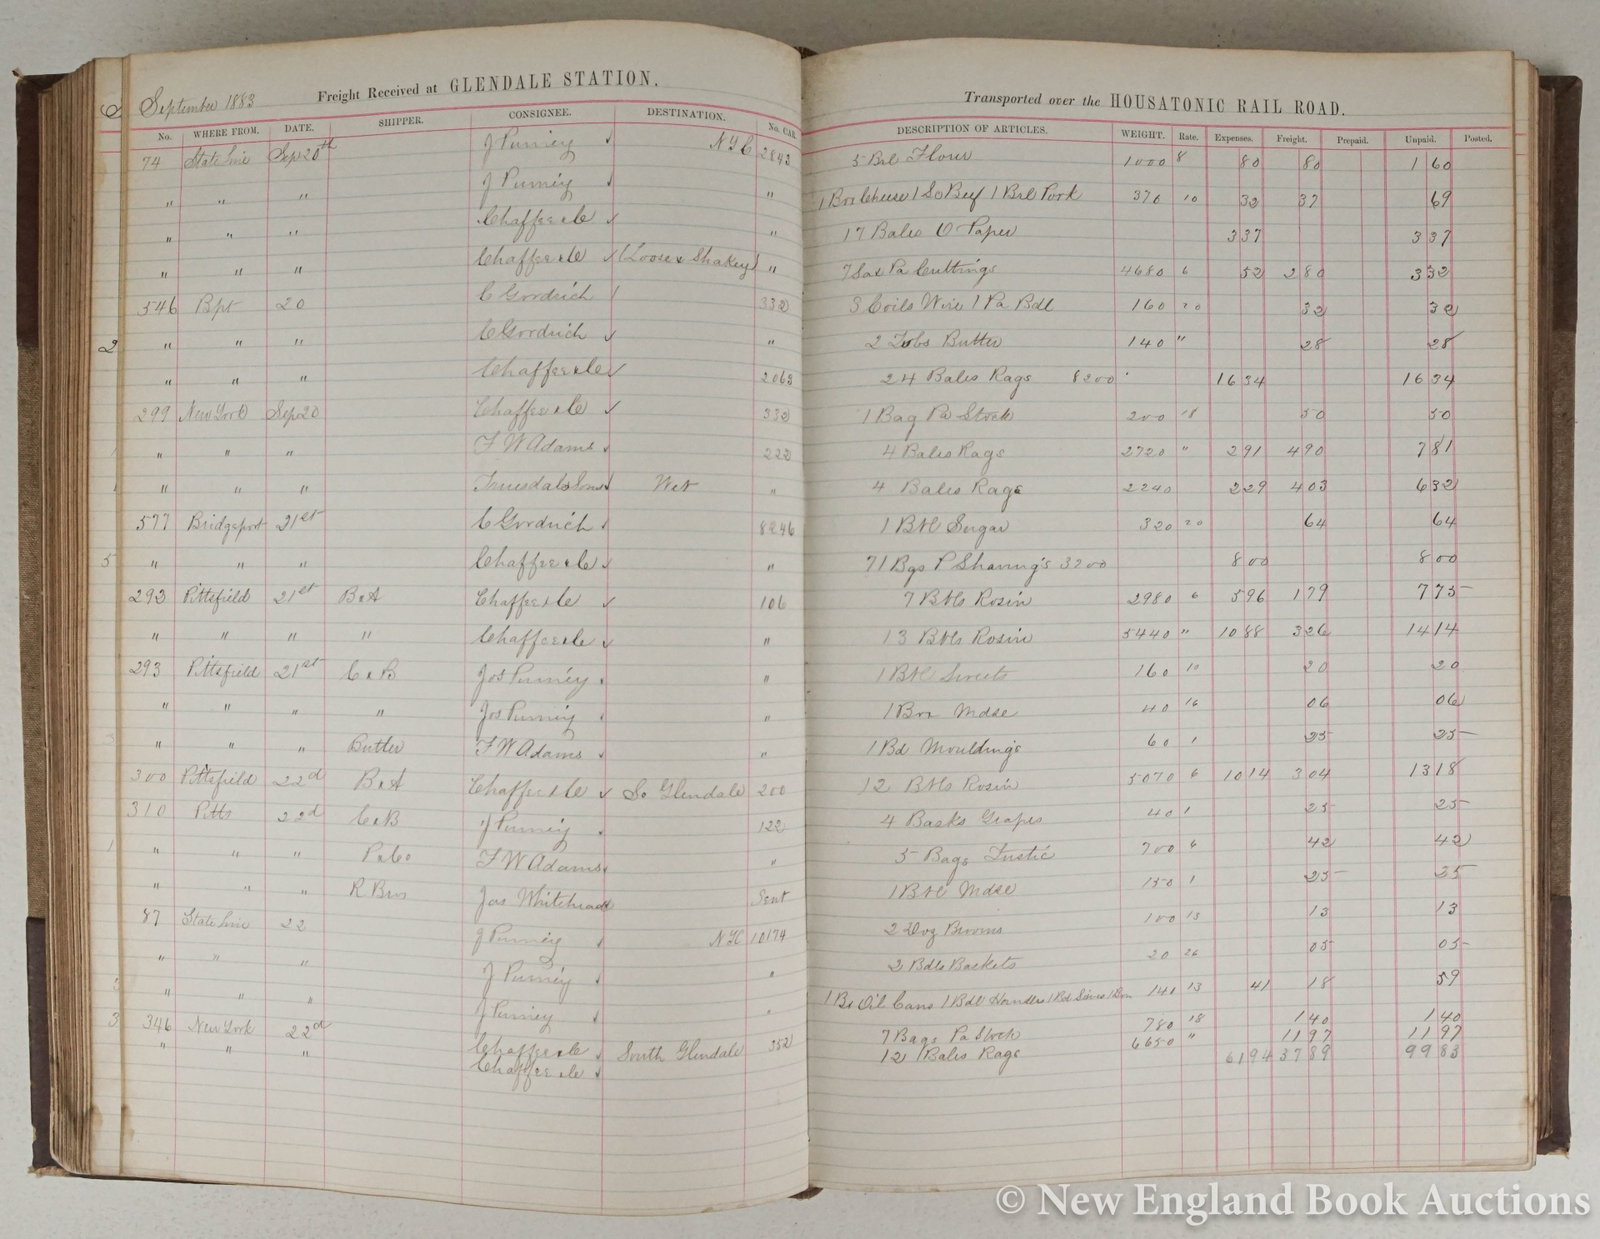 September 1883 Freight Received at GLENDALE STATION. Transported over the HOUSATONIC RAIL ROAD.
No. WHERE FROM. DATE. SHIPPER. CONSIGNEE. DESTINATION. No. CAR. DESCRIPTION OF ARTICLES. WEIGHT. Rate. Expenses. Freight. Prepaid. Unpaid. Posted.
74 State Line Sep 20th J Purney NYC 2843 5 Brl Flour 1000 8 80 80 1 60
" " " J Purney " 1 Box Cheese 1 So Beef 1 Brl Pork 370 10 32 37 69
" " " Chaffee & Co " 17 Bales O Paper 337 337
" " " Chaffee & Co (Loose & Shakey) " 7 Sax Pa Cuttings 4680 6 52 280 332
546 Bpt 20 C Goodrich 332 3 Coils Wire 1 Pa Bdl 160 20 32 32
2 " " " C Goodrich " 2 Tubs Butter 140 " 28 28
" " " Chaffee & Co 2063 24 Bales Rags 8200 1634 1634
299 New York Sep 20 Chaffee & Co 332 1 Bag Pa Stock 200 18 50 50
" " " F W Adams 222 4 Bales Rags 2720 " 291 490 781
" " " Truesdal & Sons Wet " 4 Bales Rags 2240 229 403 632
577 Bridgeport 21st C Goodrich 8246 1 Bbl Sugar 320 20 64 64
5 " " " Chaffee & Co " 71 Bgs P Shaving's 3200 800 800
292 Pittsfield 21st B&A Chaffee & Co 106 7 Bbls Rosin 2980 6 596 179 775
" " " " Chaffee & Co " 13 Bbls Rosin 5440 " 1088 326 1414
293 Pittsfield 21st C & B Jos Purney " 1 Bbl Sweets 160 10 20 20
" " " " Jos Purney " 1 Box Mdse 40 16 06 06
3 " " " Butler F W Adams " 1 Bd Mouldings 60 1 25 25
300 Pittsfield 22d B&A Chaffee & Co So Glendale 200 12 Bbls Rosin 5070 6 1014 304 1318
310 Pitts 22d C & B J Purney 122 4 Basks Grapes 40 1 25 25
1 " " " P & Co F W Adams " 5 Bags Fustic 700 6 42 42
" " " R Bros Jas Whitehead Sent 1 Bbl Mdse 150 1 25 25
87 State Line 22 J Purney NYC 10174 2 Doz Brooms 100 13 13 13
" " " J Purney " 2 Bdls Baskets 20 26 05 05
" " " J Purney " 1 Bx Oil Cans 1 Bdl Handles 141 13 41 18 59
3 346 New York 22d Chaffee & Co South Glendale 352 7 Bags Pa Stock 780 18 140 140
" " " Chaffee & Co 12 Bales Rags 6650 " 1197 1197
6194 3789 9983
© New England Book Auctions